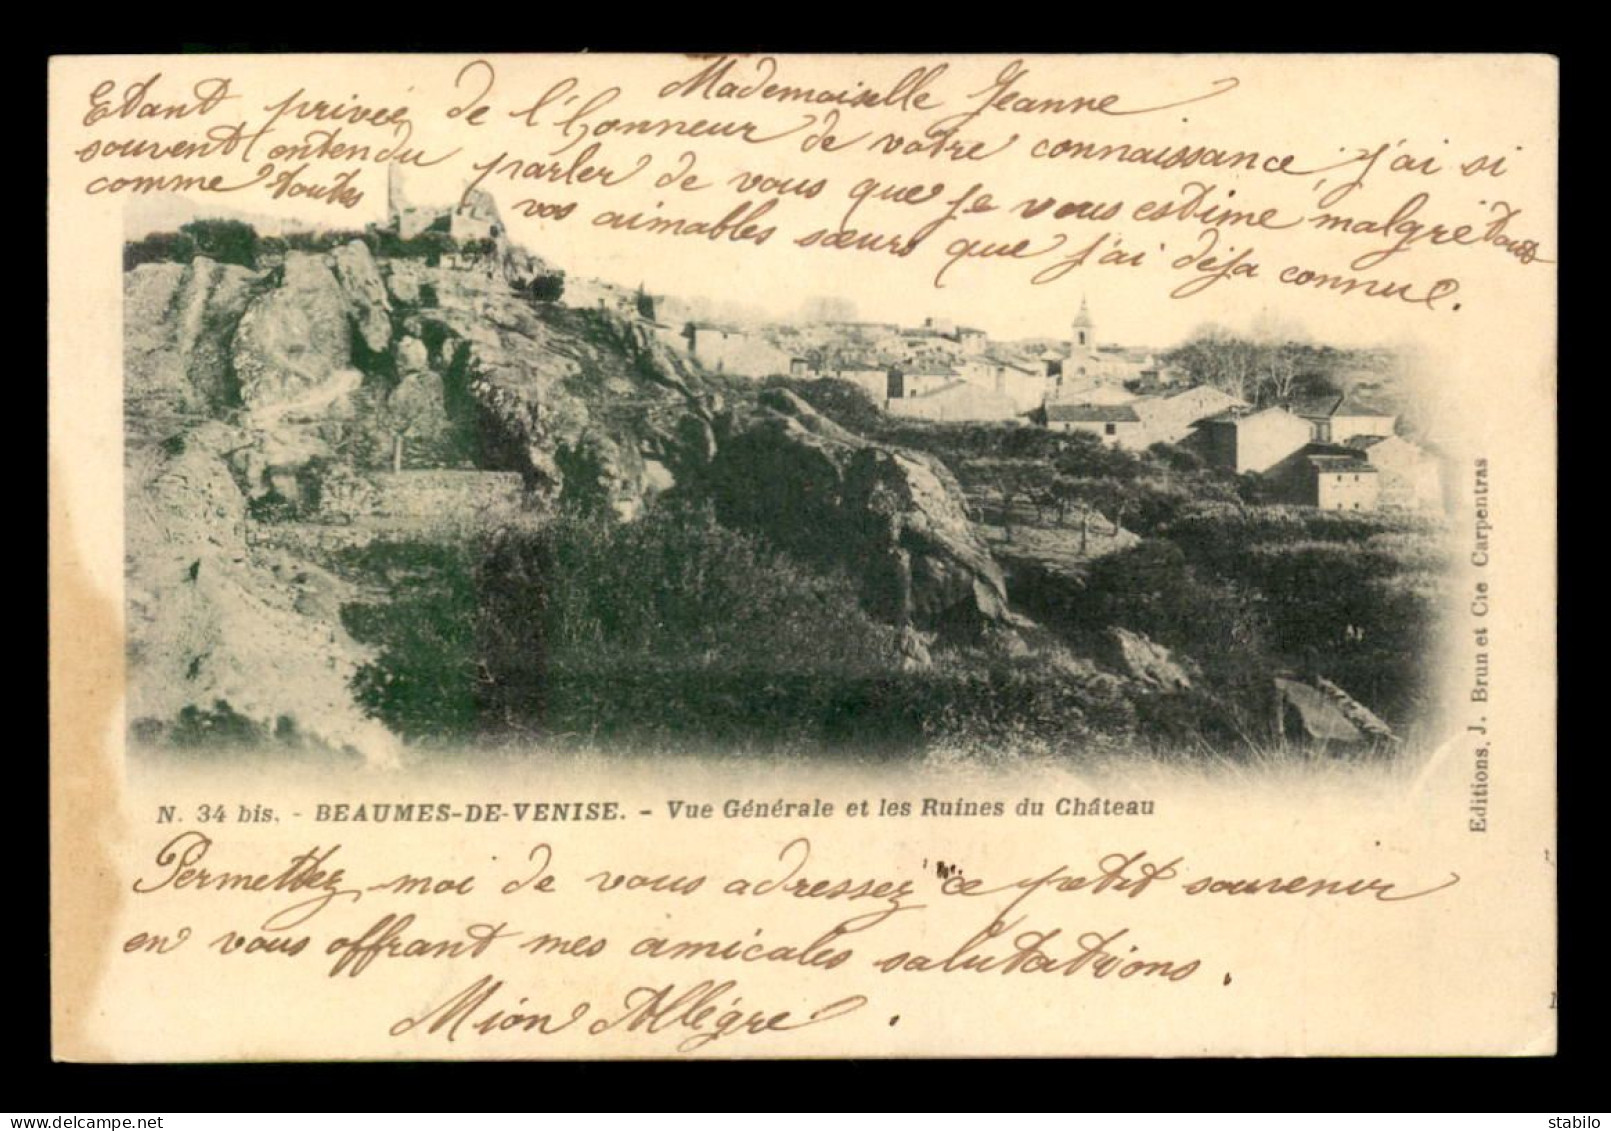 Mademoiselle Jeanne
Etant privée de l'honneur de votre connaissance, j'ai si
souvent entendu parler de vous que je vous estime malgré tout
comme toutes vos aimables sœurs que j'ai déja connue.
N. 34 bis. - BEAUMES-DE-VENISE. - Vue Générale et les Ruines du Château
Editions, J. Brun et Cie Carpentras
Permettez moi de vous adressez ce petit souvenir
en vous offrant mes amicales salutations.
Mion Allègre.
delcampe.net
stabilo